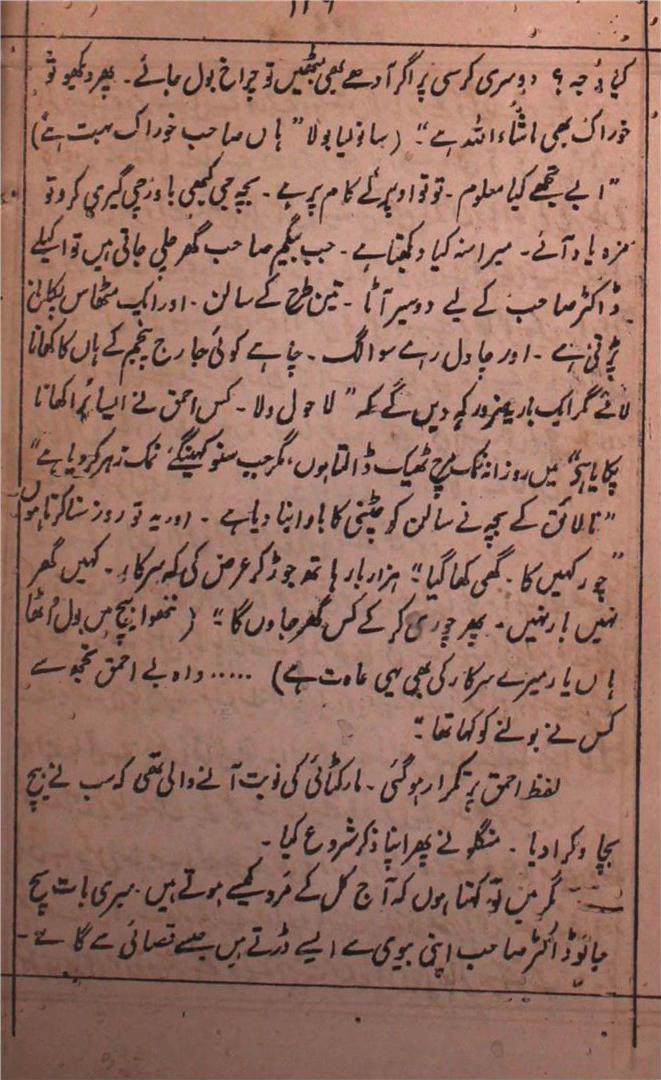 ۱۲۶
کیا وجہ ؟ دوسری کرسی پر اگر آدھے بھی بیٹھیں تو چراخ بول جائے ۔ پھر دیکھیو تو
خوراک بھی ماشاء اللہ ہے “ ( سانولیا بولا ” ہاں صاحب خوراک بہت ہے )
” ابے تجھے کیا معلوم ۔ تو تو اوپر کے کام پر ہے ۔ بچہ جی کبھی باورچی گیری کرو تو
مزہ یاد آئے ۔ میرا منہ کیا دیکھتا ہے ۔ جب بیگم صاحب گھر چلی جاتی ہیں تو اکیلے
ڈاکٹر صاحب کے لیے دو سیر آٹا ۔ تین طرح کے سالن ۔ اور ایک مٹھاس پکانی
پڑتی ہے ۔ اور چاول رہے سو الگ ۔ چاہے کوئی جارج پنجم کے ہاں کا کھانا
لائے مگر ایک بار یہ ضرور کہدیں گے کہ ” لا حول ولا ۔ کس احمق نے ایسا بُرا کھانا
پکایا ہے “ میں روزانہ نمک مرچ ٹھیک ڈالتا ہوں ، مگر جب سنو کہینگے نمک زہر کر دیا ہے “
” نالائق کے بچہ نے سالن کو چٹنی کا باوا بنا دیا ہے ۔ اور یہ تو روز سنا کرتا ہوں
” چور کہیں کا ۔ گھی کھا گیا “ ہزار بار ہاتھ جوڑ کر عرض کی کہ سرکار ۔ کہیں گھر
نہیں بار نہیں ۔ پھر چوری کر کے کس گھر جاوں گا “ ( نتھوا بیچ میں بول اُٹھا
ہاں یار میرے سرکار کی بھی یہی عادت ہے ) ..... واہ بے احمق تجھ سے
کس نے بولنے کو کہا تھا “
لفظ احمق پر تکرار ہو گئی ۔ مار کٹائی کی نوبت آنے والی تھی کہ سب نے بیچ
بچا وکرا دیا ۔ منگلو نے پھر اپنا ذکر شروع کیا ۔
مگر میں تو کہتا ہوں کہ آج کل کے مرد کیسے ہوتے ہیں ۔ میری بات سچ
جانو ڈاکٹر صاحب اپنی بیوی سے ایسے ڈرتے ہیں جیسے قصائی سے گائے ۔